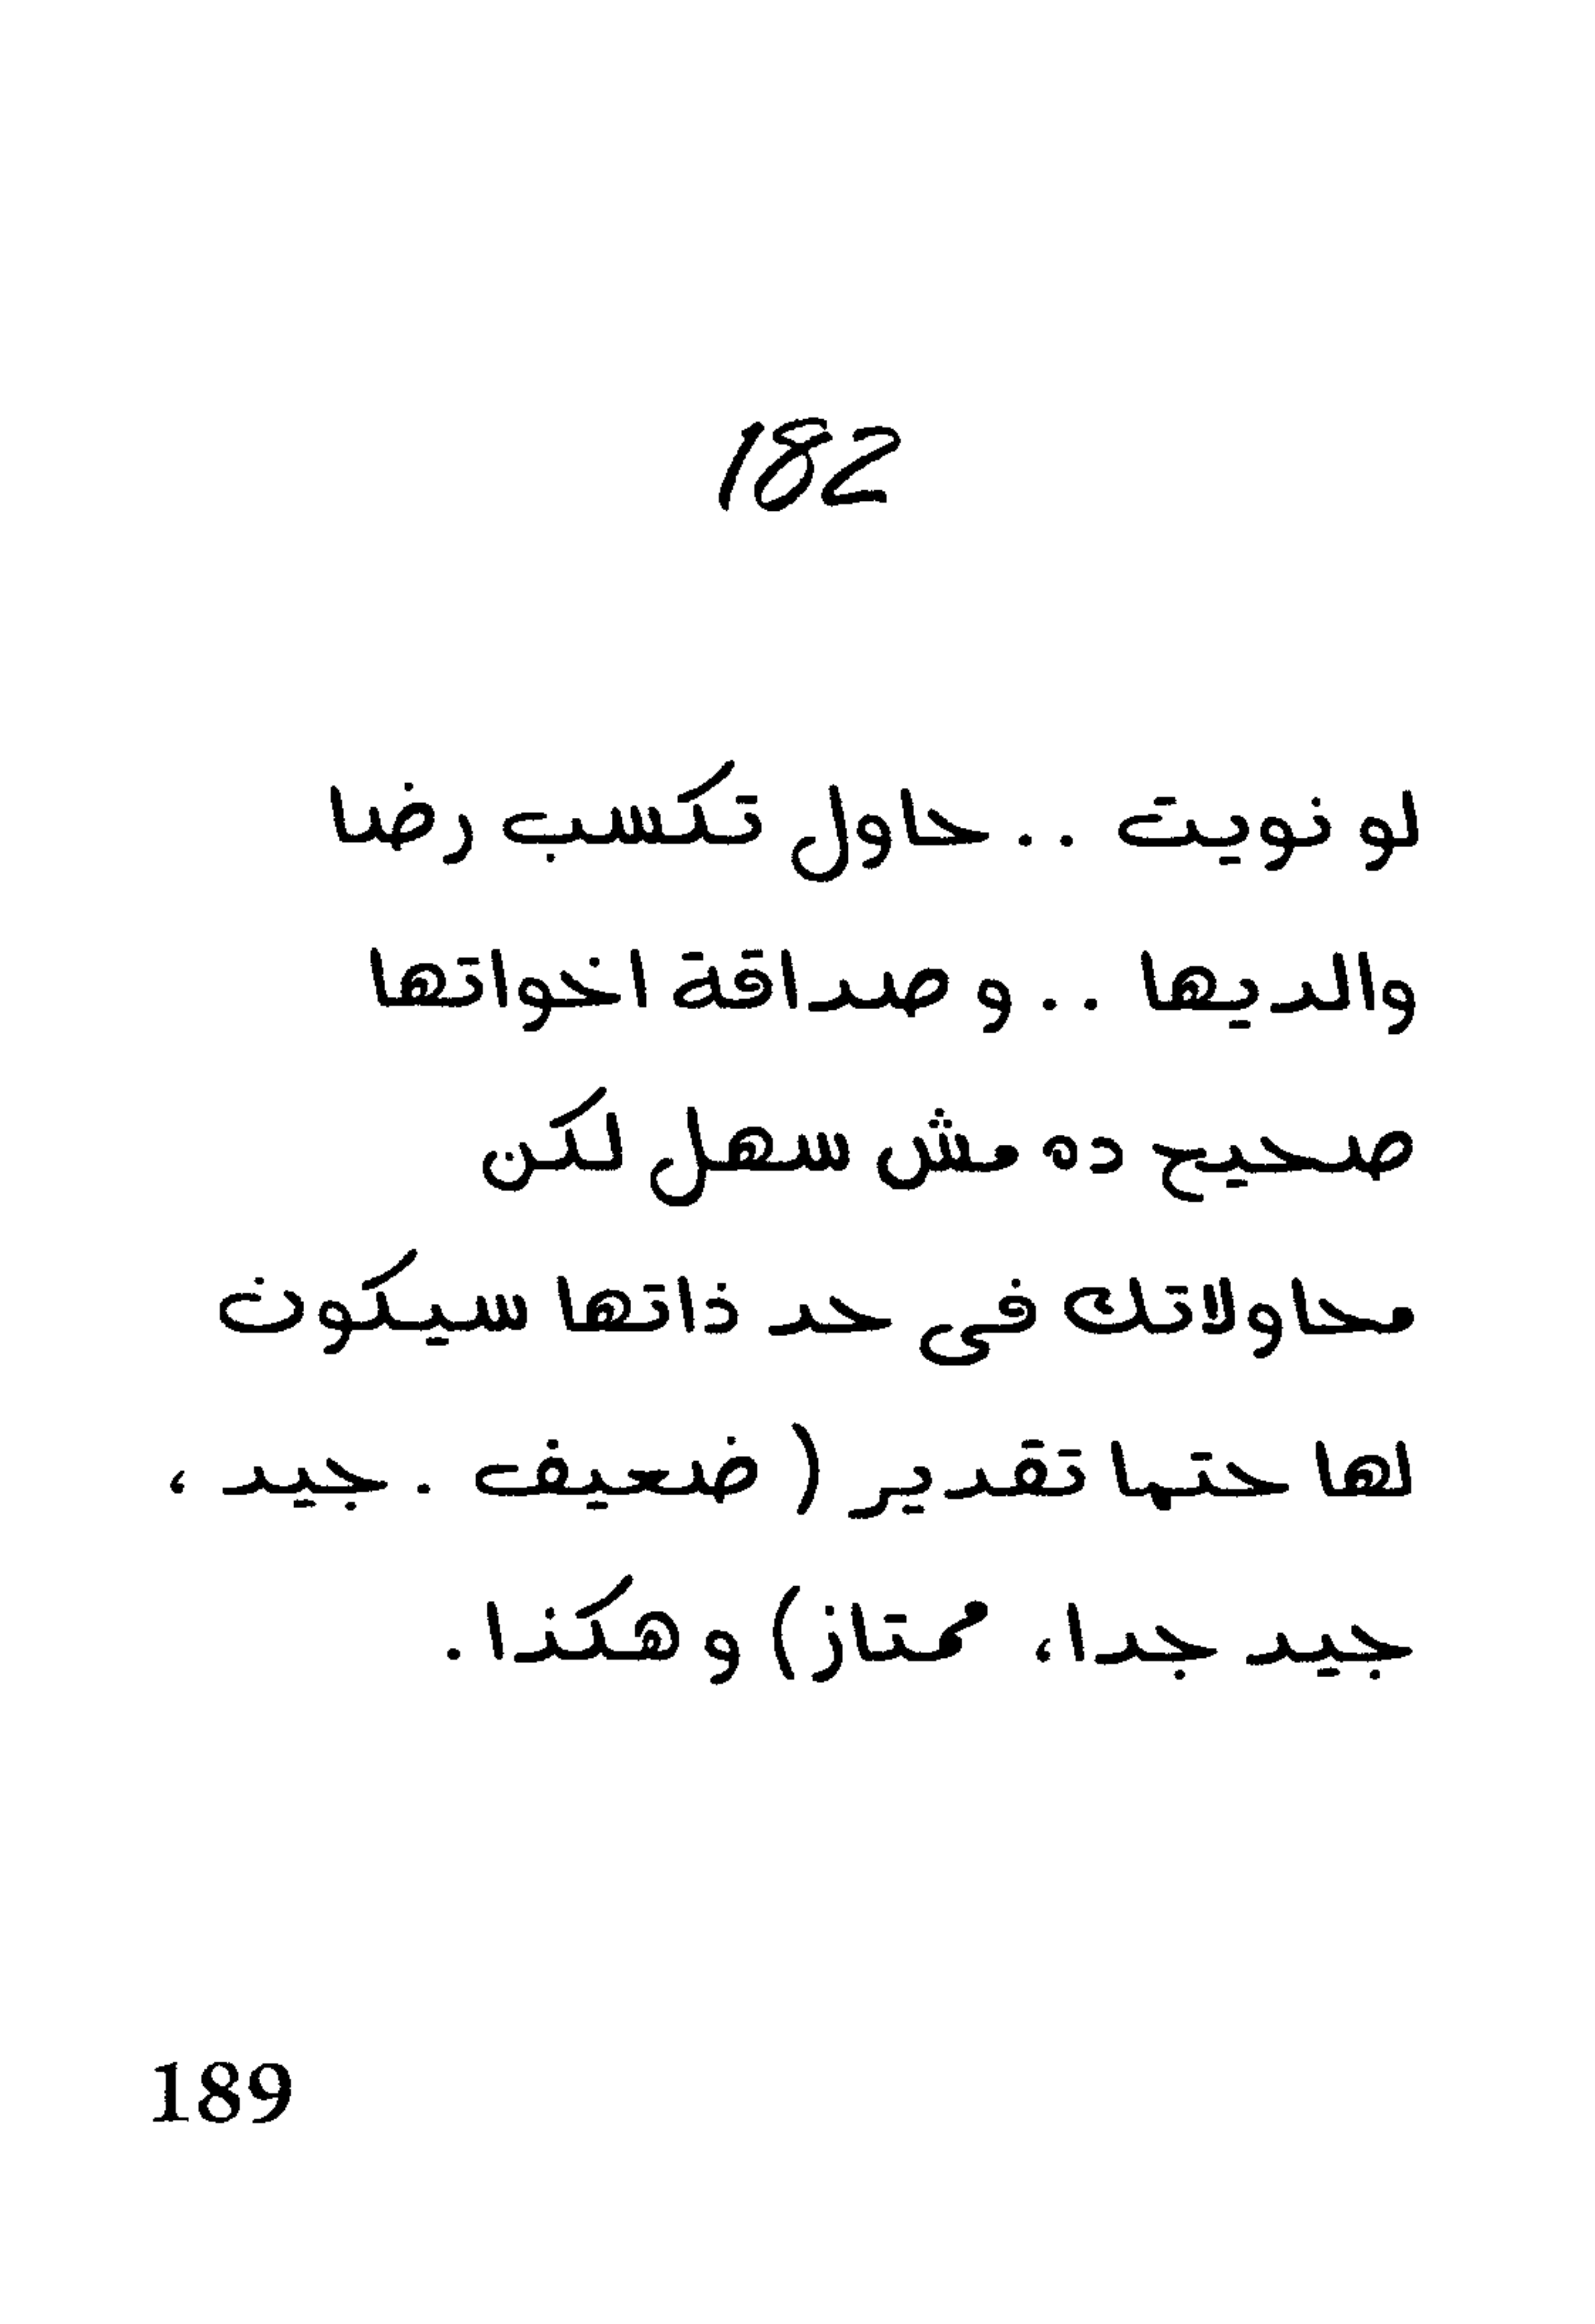 182
لو نويت .. حاول تكسب رضا
والديها .. و صداقة اخواتها
صحيح ده مش سهل لكن
محاولاتك فى حد ذاتها سيكون
لها حتما تقدير ( ضعيف . جيد ،
جيد جدا، ممتاز) وهكذا .
189